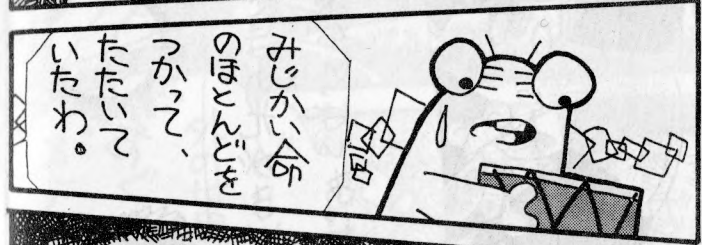 みじかい命
のほとんどを
つかって、
たたいて
いたわ。